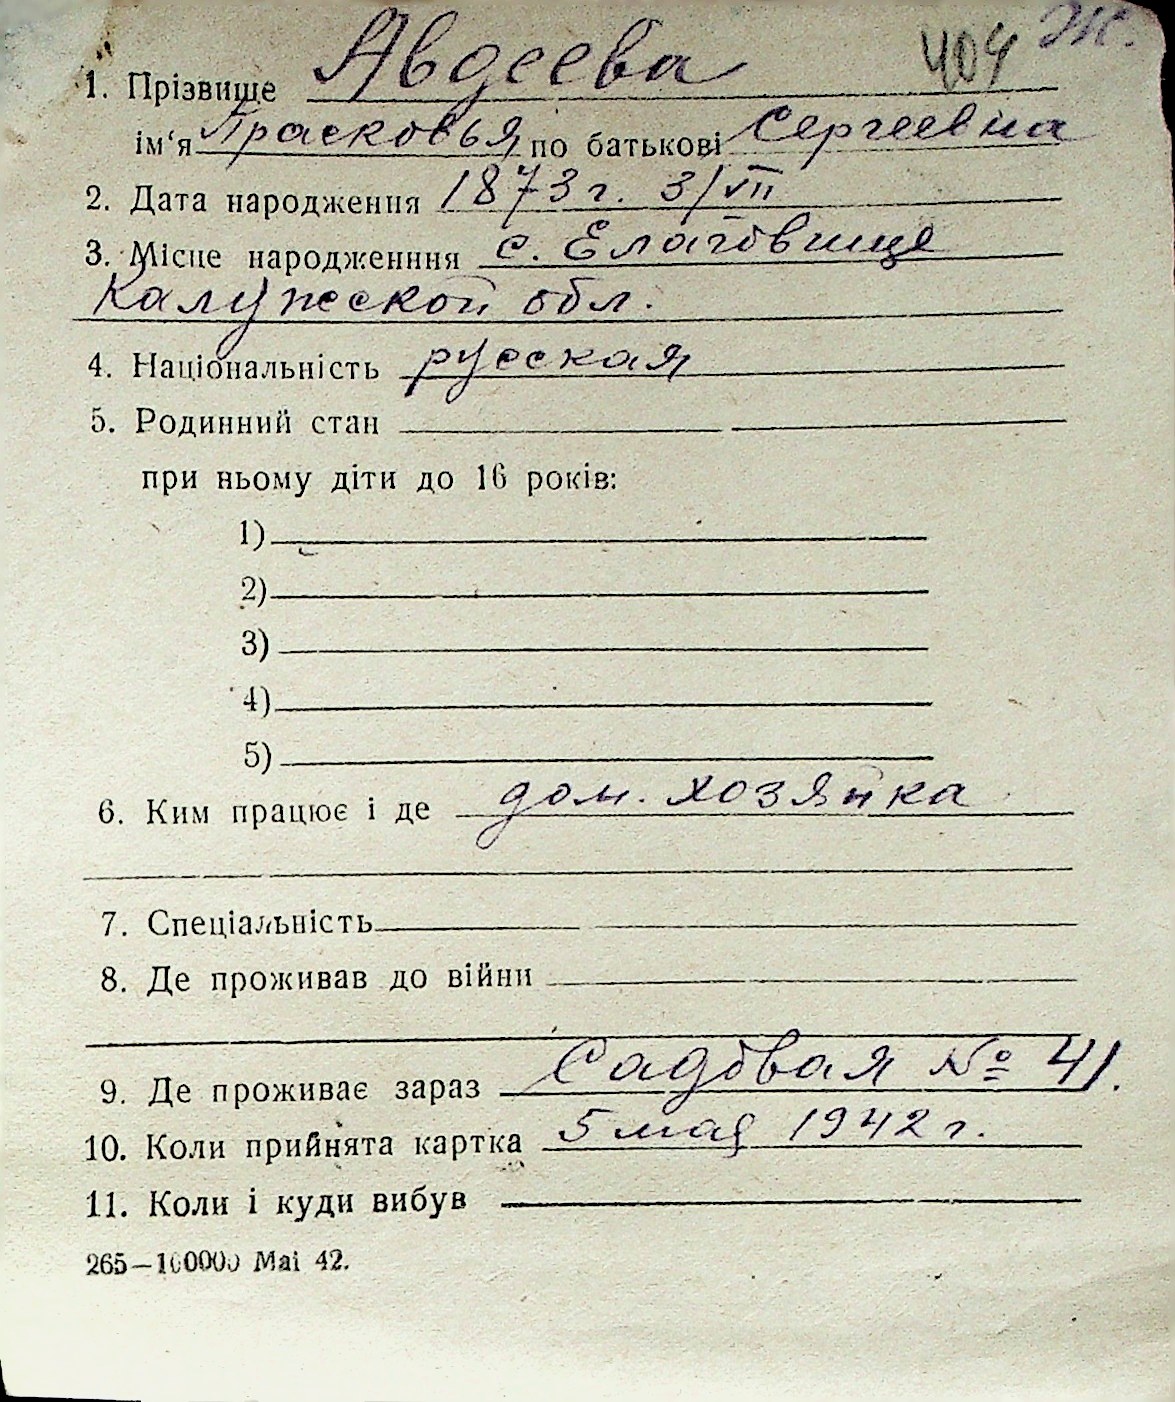 404 Ж.
1. Прізвище Авдеева
ім'я Прасковья по батькові Сергеевна
2. Дата народження 1873 г. 3/VII
3. Місце народженння с. Елатовище
Калужской обл.
4. Національність русская
5. Родинний стан
при ньому діти до 16 років:
1)
2)
3)
4)
5)
6. Ким працює і де дом. хозяйка
7. Спеціальність
8. Де проживав до війни
9. Де проживає зараз Садовая № 41.
10. Коли прийнята картка 5 мая 1942 г.
11. Коли і куди вибув
265—100000 Mai 42.